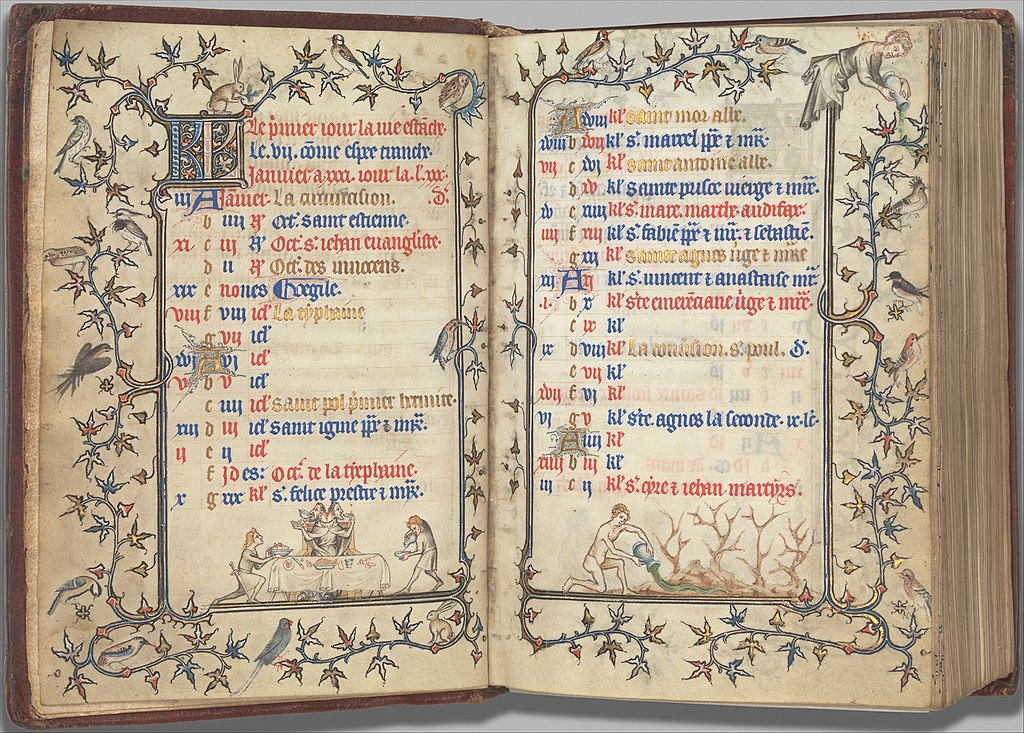 Le p̄mier iour la uie estāche.
Le .vij. cōme espee trauche.
Januier a .xxxi. iour la .l. xxx.
iij A Ianuier. La circuncision. D.
b iiij Oct. saint estienne.
xi c iij Oct. s. iehan euangliste.
d ij Oct. des innocens.
xix e nones Goegile.
viij f viij id' La typhaine
g vij id'
xvi A vi id'
v b v id'
c iiij id' Saint pol p̄mier hermite.
xiij d iij id' saint igine
ij e ij id'
f Ides: Oct. de la typhaine.
x g xix kl' s. felice prestre
A xviij kl' saint mor abbe.
xviij b xvij kl' s. marcel
vij c xvi kl' saint antoine abbe.
d xv kl' sainte prisce uierge
xv e xiiij kl' s. marc. marcth. audifax.
iiij f xiij kl' s. fabiē sebastiē.
g xij kl' sainte agnes
xij A xi kl' s. uincent anastaise
i. b x kl' ste emerēciane
c ix kl'
ix d viij kl' La conūsion. s. poul. D.
e vij kl'
xvij f vi kl'
vi g v kl' ste. agnes la seconde.
A iiij kl'
xiiij b iij kl'
iij c ij kl' s. cyre iehan martyrs.